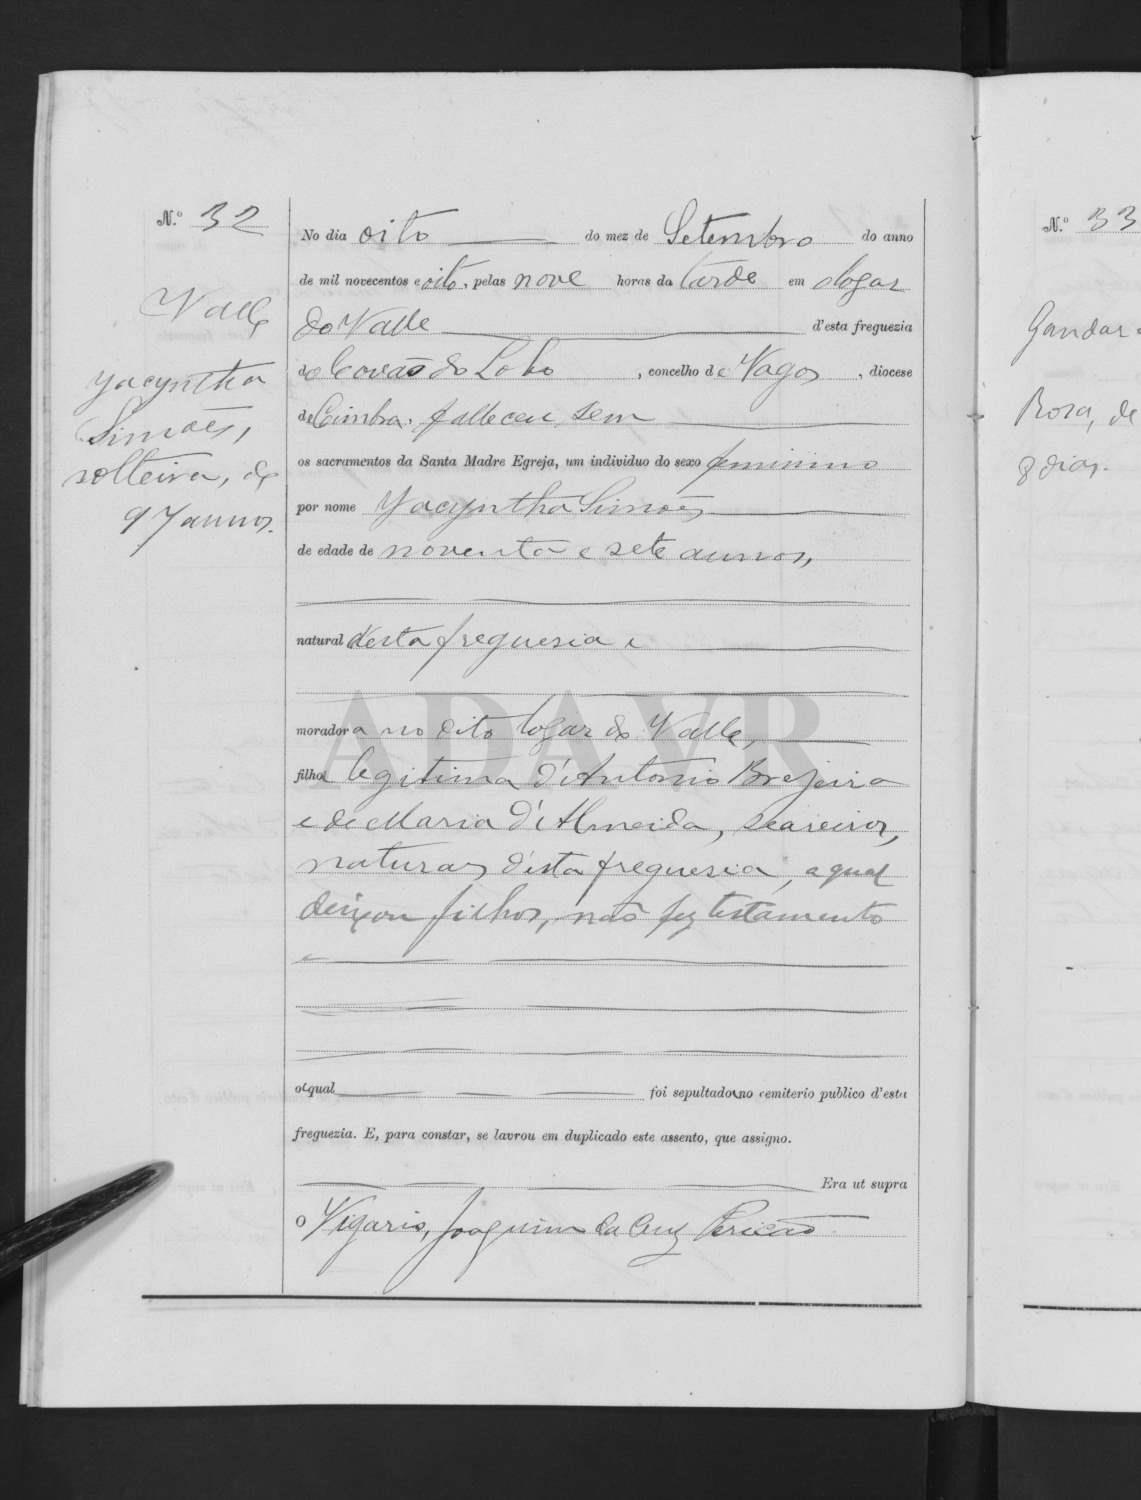 N.º 32
Valle
Jacyntha
Simões,
solteira, de
97 annos.
No dia oito do mez de Setembro do anno
de mil novecentos e oito, pelas nove horas da tarde em o logar
do Valle d'esta freguezia
de Covão do Lobo, concelho de Vagos, diocese
de Coimbra, falleceu sem
os sacramentos da Santa Madre Egreja, um individuo do sexo feminino
por nome Jacyntha Simões
de edade de noventa e sete annos,
natural desta freguesia e
moradora no dito logar do Valle,
filha legitima d'Antonio Brejeiro
e de Maria d'Almeida, seareiros,
naturaes d'esta freguesia, a qual
deixou filhos, não fez testamento
e
o qual foi sepultado no cemiterio publico d'esta
freguezia. E, para constar, se lavrou em duplicado este assento, que assigno.
Era ut supra
O Vigario, Joaquim da Cruz Pericão
ADAVR
N.º 33
Gandar
Rosa, de
8 dias.